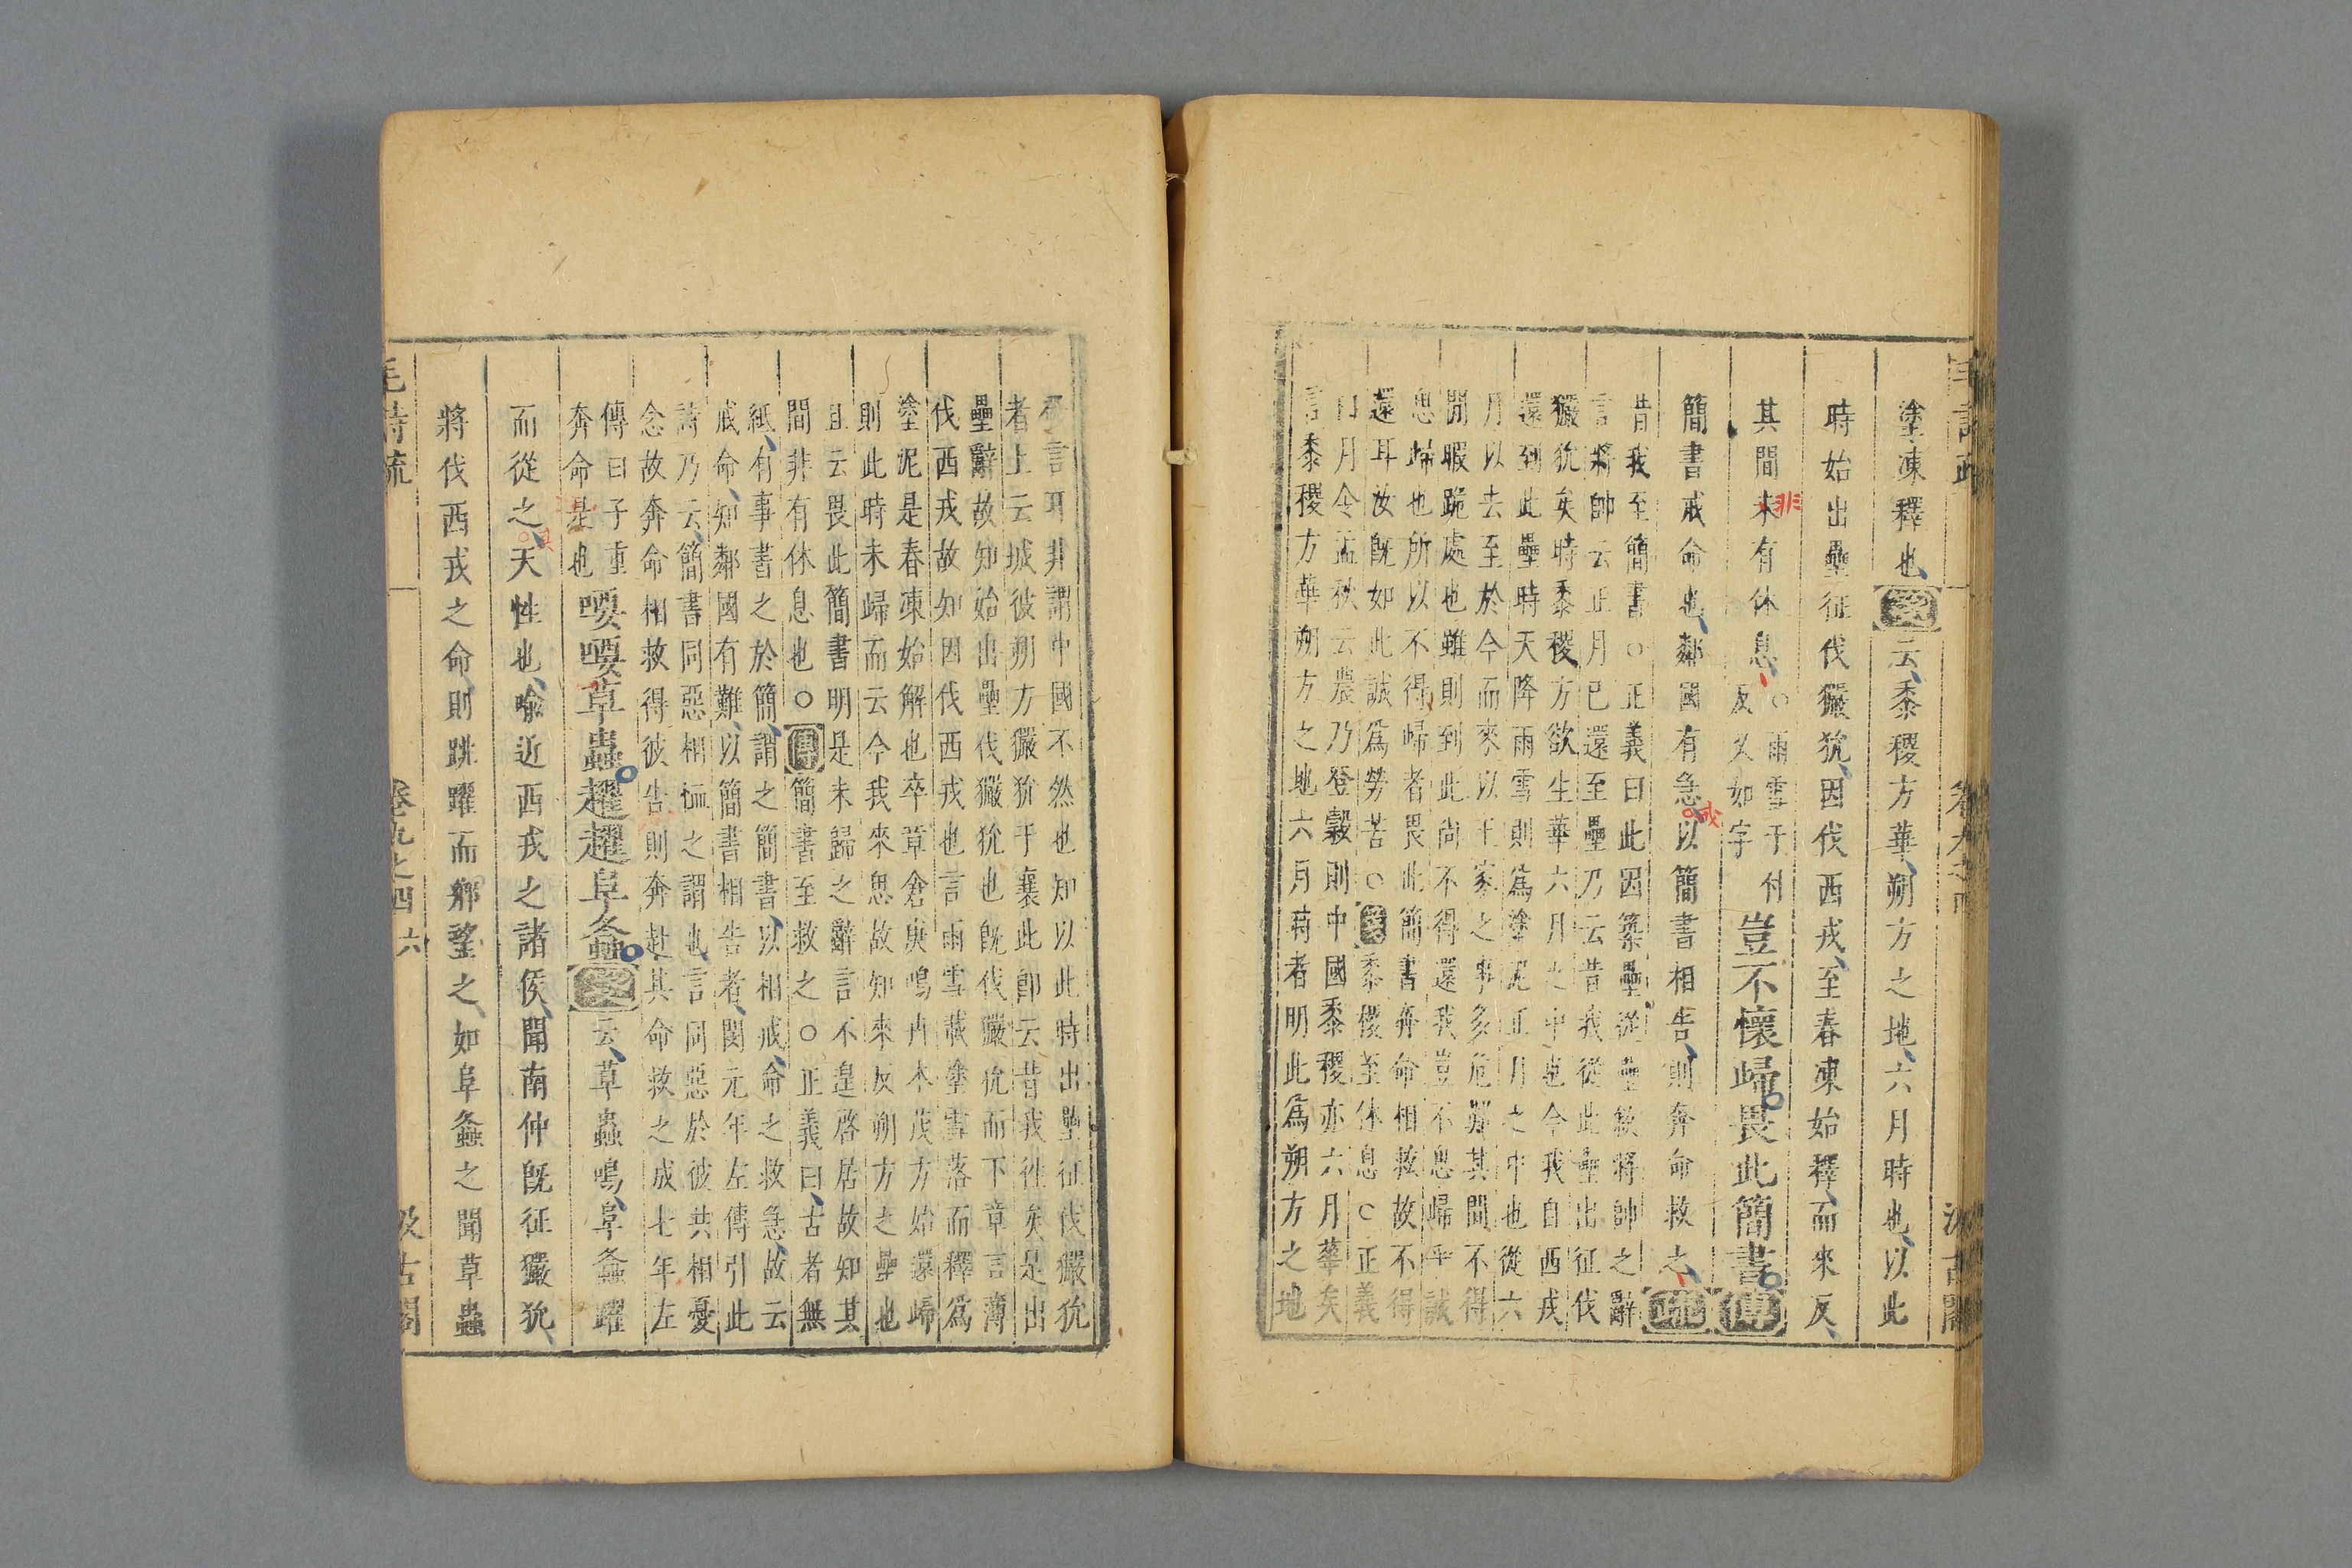 毛詩疏 卷九之四 汲古閣
塗凍釋也箋云黍稷方華朔方之地六月時也以此
時始出壘征伐玁狁因伐西戎至春凍始釋而來反
其間未有休息○雨雪于付反又如字豈不懷歸畏此簡書傳
非
簡書戒命也鄰國有急以簡書相告則奔命救之疏
戒
昔我至簡書○正義曰此因築壘從壘敘將帥之辭
言將帥云正月已還至壘乃云昔我從此壘出征伐
玁狁矣時黍稷方欲生華六月之中也今我自西戎
還到此壘時天降雨雪則爲塗泥正月之中也從六
月以去至於今而來以王家之事多危難其間不得
閒暇跪處也雖則到此尚不得還我豈不思歸乎誠
思歸也所以不得歸者畏此簡書奔命相救故不得
還耳汝旣如此誠爲勞苦○箋黍稷至休息○正義
曰月令孟秋云農乃登穀則中國黍稷亦六月華矣
言黍稷方華朔方之地六月時者明此爲朔方之地
發言耳非謂中國不然也知以此時出壘征伐玁狁
者上云城彼朔方玁狁于襄此卽云昔我往矣是出
壘辭故知始出壘伐玁狁也旣伐玁狁而下章言薄
伐西戎故知因伐西戎也言雨雪載塗雪落而釋爲
塗泥是春凍始解也卒章倉庚鳴卉木茂方始還歸
則此時未歸而云今我來思故知來反朔方之壘也
且云畏此簡書明是未歸之辭言不遑啓居故知其
間非有休息也○傳簡書至救之○正義曰古者無
紙有事書之於簡謂之簡書以相戒命之救急故云
戒命知鄰國有難以簡書相告者閔元年左傳引此
詩乃云簡書同惡相恤之謂也言同惡於彼共相憂
念故奔命相救得彼告則奔赴其命救之成七年左
傳曰子重奔命是也喓喓草蟲趯趯阜螽箋云草蟲鳴阜螽躍
而從之天性也喻近西戎之諸侯聞南仲旣征玁狁
其
將伐西戎之命則跳躍而鄉望之如阜螽之聞草蟲
毛詩疏 卷九之四 六 汲古閣